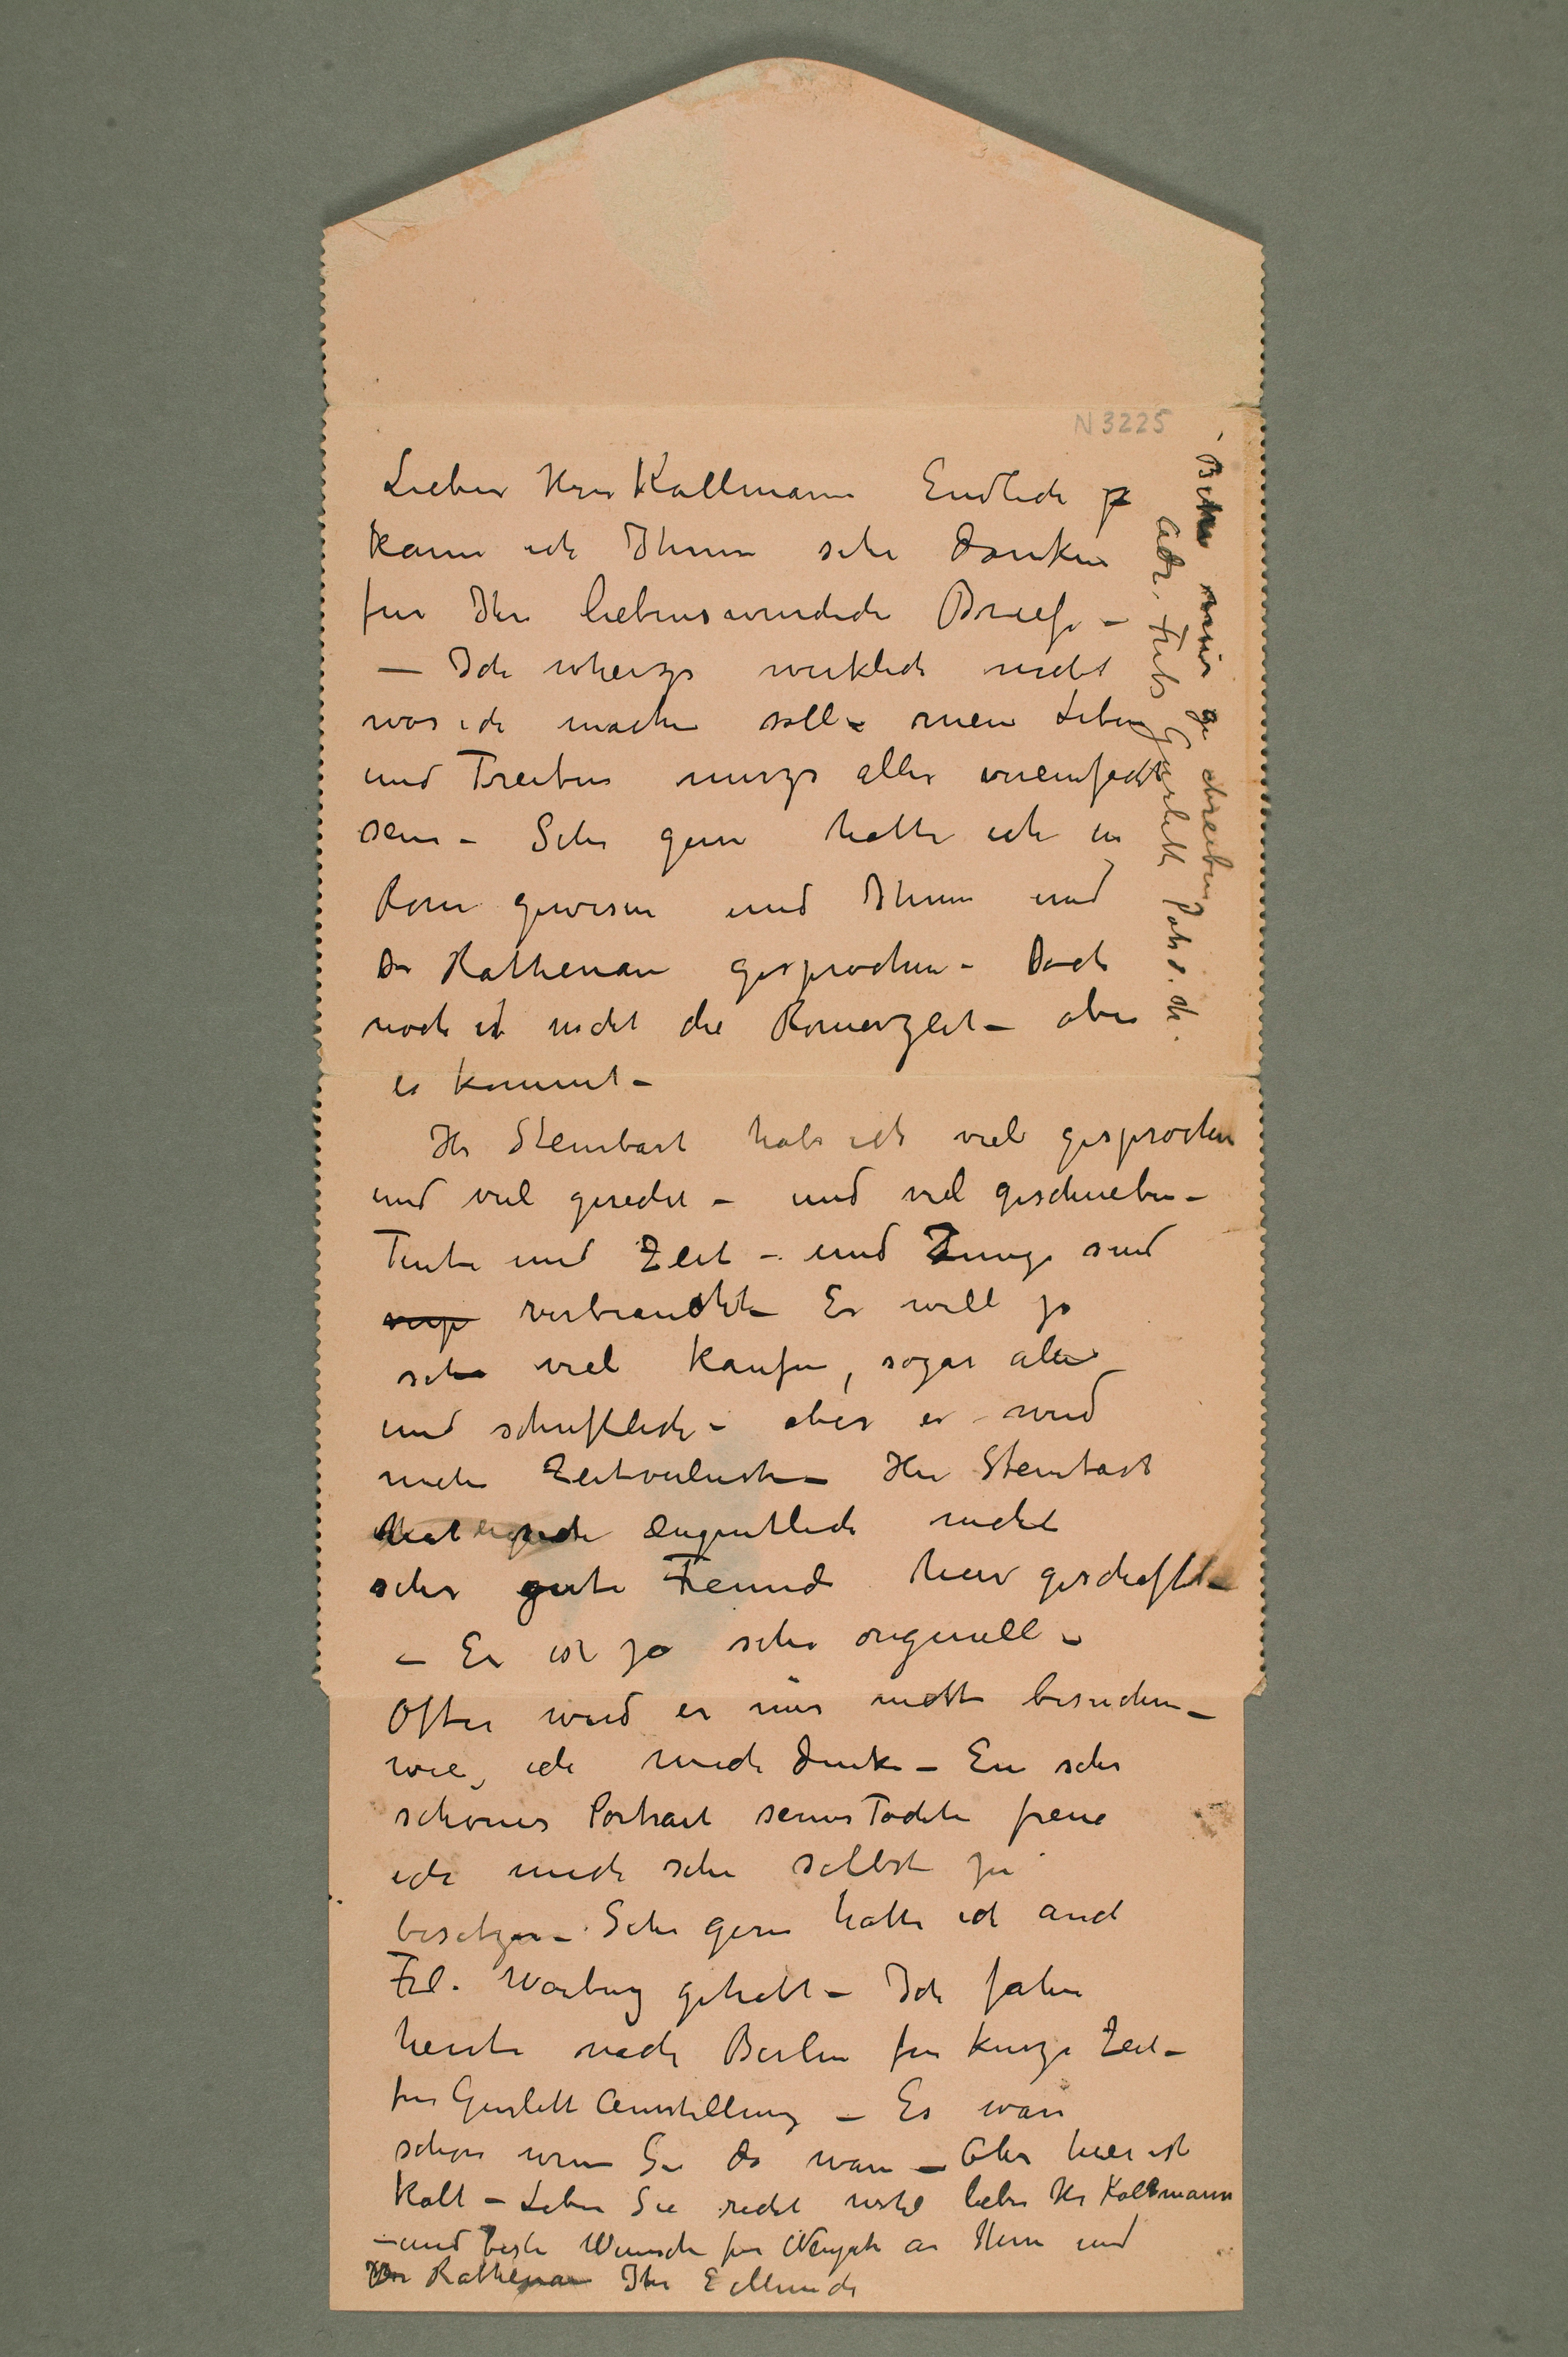 N 3225
Lieber Herr Kallmann Endlich
kann ich Ihnen sehr danken
fur Ihre liebenswurdide Briefe –
– Ich wheizs wirklich nicht
was ich mache soll – mein Leben
und Treiben muzs alles vereinfacht
sein – Sehr gern hatte ich in
Rom gewesen und Ihnen und
Dr Rathenau gesprochen – Doch
noch ist nicht die Romerzeit – aber
es kommt –
Hr Steinbart habe ich viel gesprochen
und viel geredet – und viel geschrieben –
Tinte und Zeit – und Zunge sind
verbraucht – Er will ja
sehr viel kaufen, sogar alles
und schriftlich – aber er wird
mehr Zeitverlust – Herr Steinbart
hat eigentlich nicht
sehr gute Freunde hier geschafft –
– Er ist ja sehr originell –
Ofter wird er mir nicht besuchen –
wie, ich mich denke – Ein sehr
schones Portrait seines Tochter freue
ich mich sehr selbst zu
besitzen – Sehr gern hatte ich auch
Frl. Warburg gehabt – Ich fahre
heute nach Berlin fur kurze Zeit –
fur Gurlitt Ausstellung – Es ware
schon wenn Sie da waren – Aber hier ist
kalt – Leben Sie recht wohl lieber Hr Kallmann
– und beste Wunsche fur Neujahr an Ihnen und
Dr Rathenau Ihr E Munch
Bitte mir zu schreiben
Adr. Fritz Gurlitt Potsd. Str.